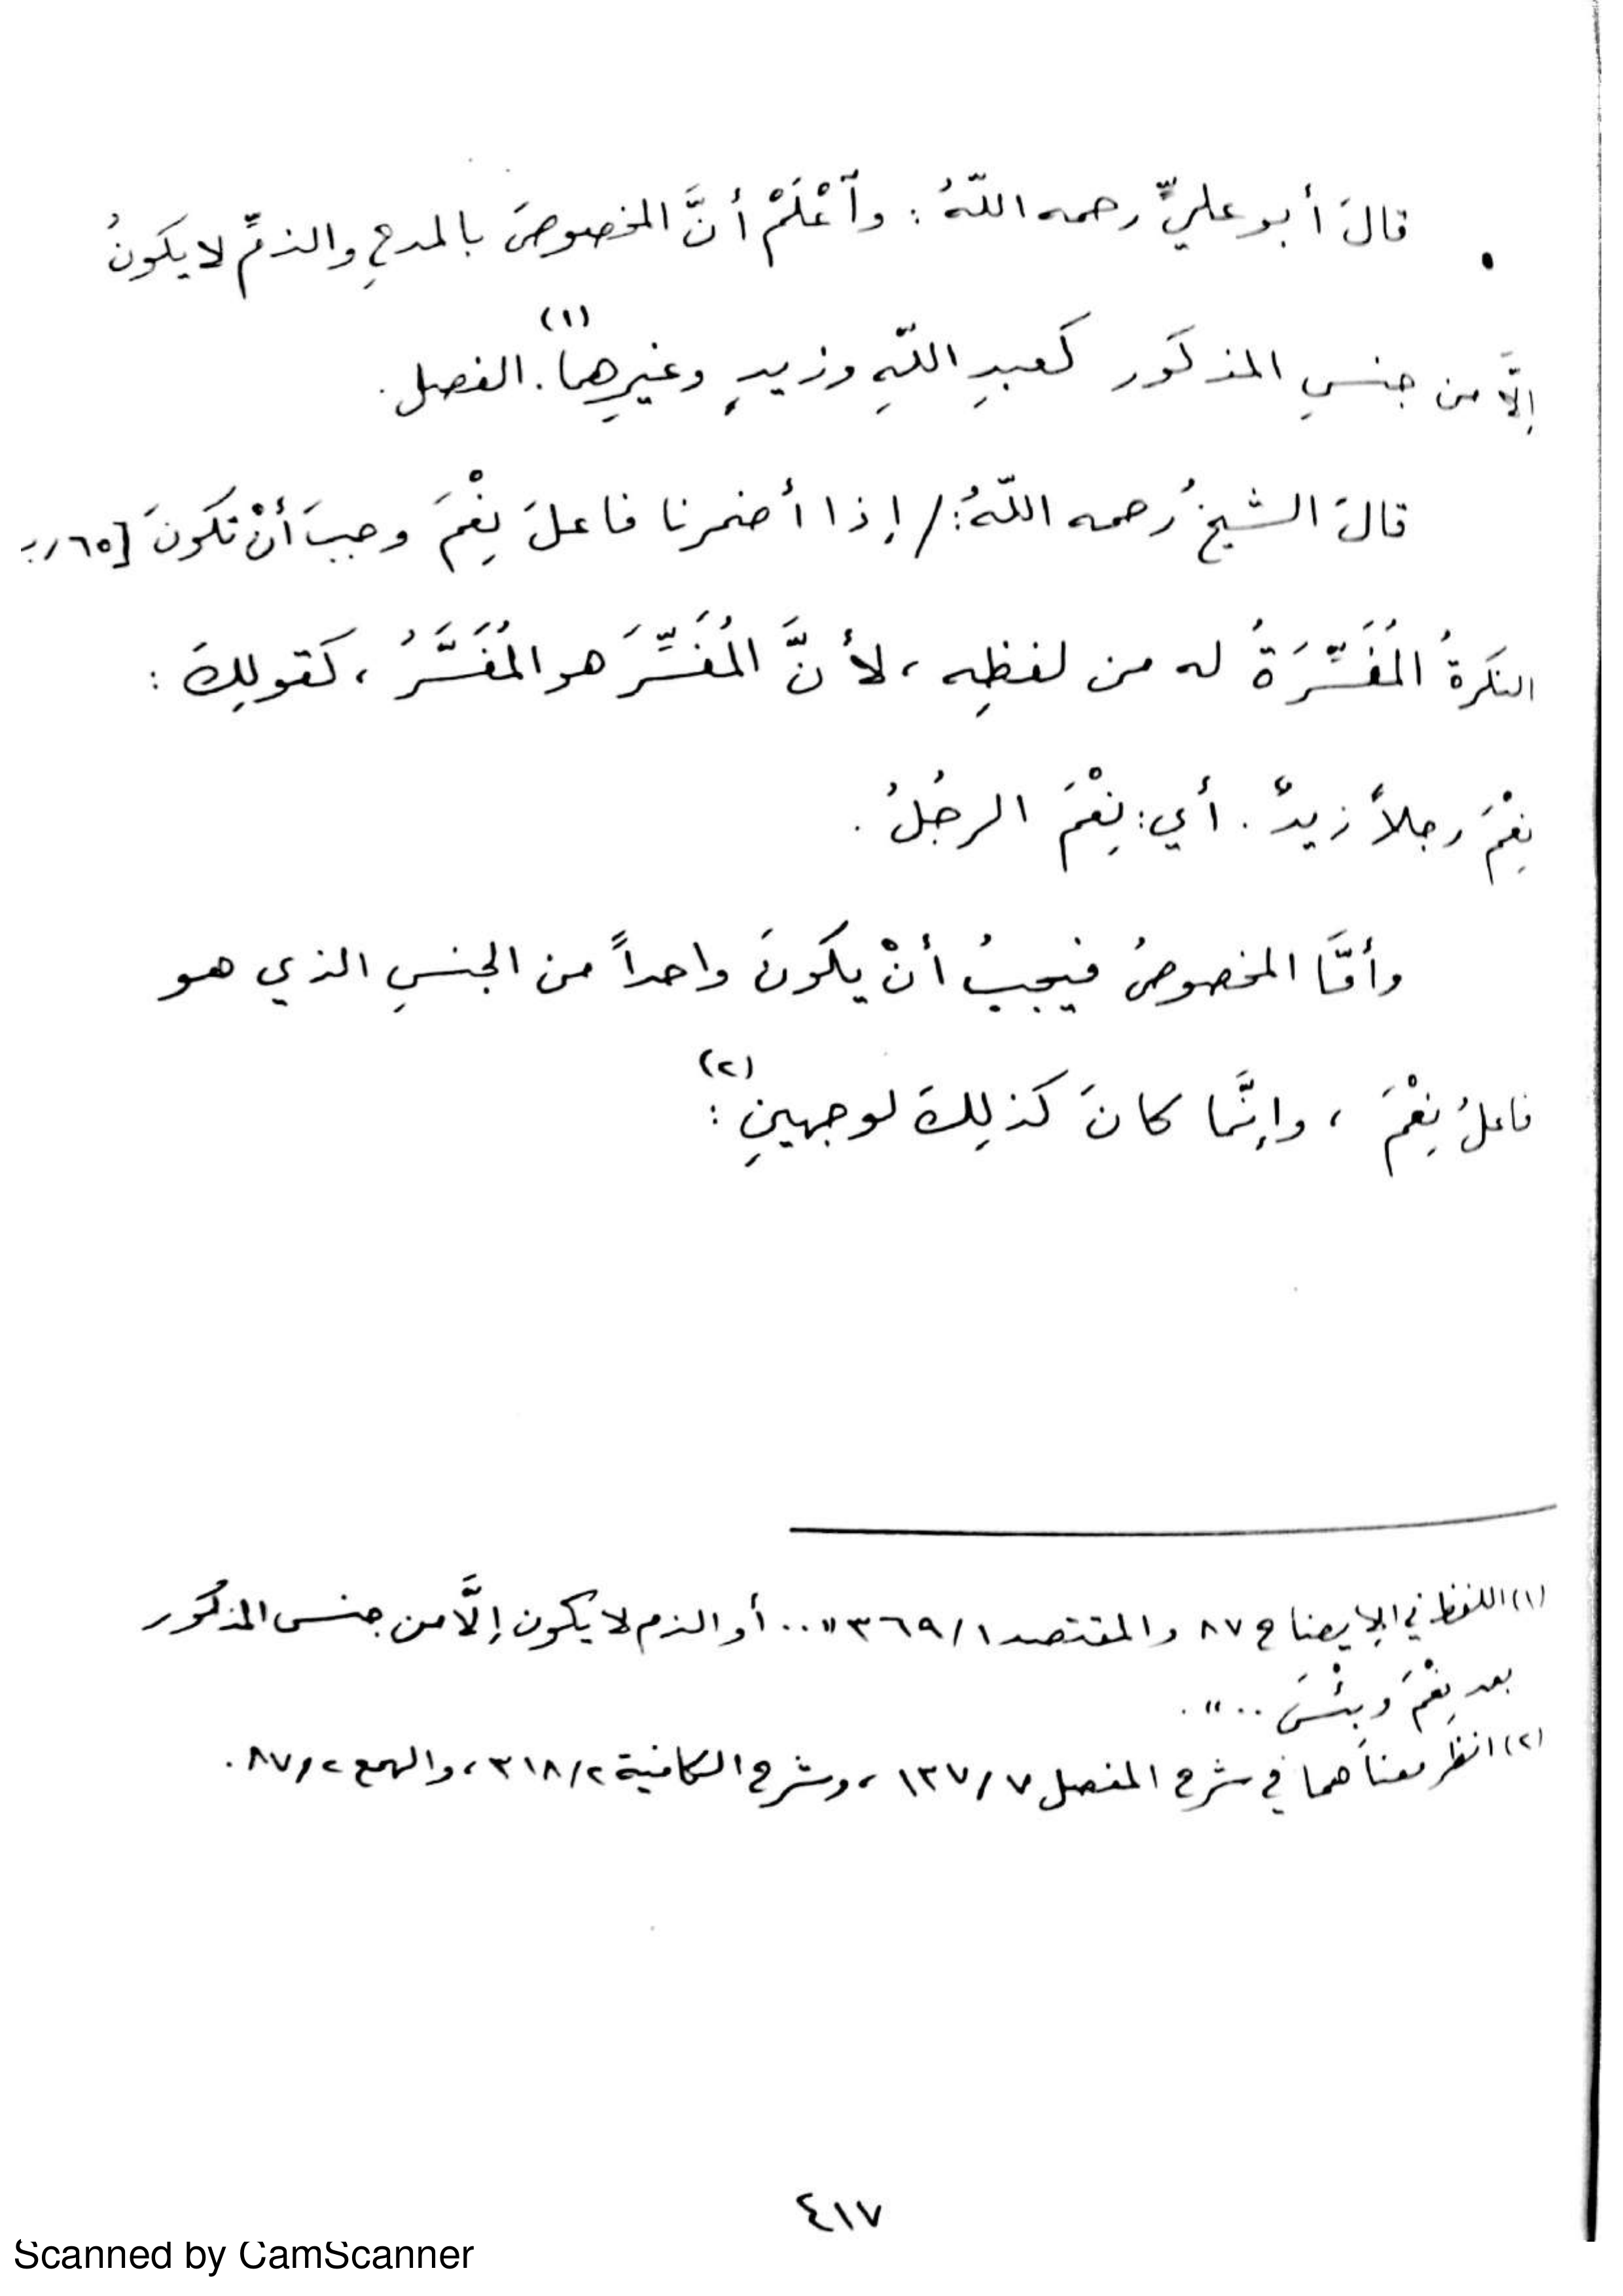 • قالَ أبو عليٍّ رحمه اللّهُ : وآعْلَمْ أنَّ المخصوصَ بالمدحِ والذمِّ لا يكونُ
إلَّا من جنسِ المذكور كعبدِ اللّهِ وزيدٍ وغيرِهما (١). الفصل.
قالَ الشيخُ رحمه اللّهُ: / إذا أضمرنا فاعلَ نِعْمَ وجبَ أنْ تكونَ [٦٥/
النكرةُ المُفَسِّرَةُ له من لفظِه ، لأنَّ المُفَسِّرَ هو المُفَسَّرُ ، كقولِكَ :
نِعْمَ رجلاً زيدٌ . أي : نِعْمَ الرجُلُ .
وأمَّا المخصوصُ فيجبُ أنْ يكونَ واحداً من الجنسِ الذي هو
فاعلُ نِعْمَ ، وإنَّما كانَ كذلِكَ لوجهينِ (٢) :
(١) اللفظ في الإيضاح ٨٧ والمقتصد ٣٦٩/١ " .. أو الذم لا يكون إلَّا من جنس المذكور
بعد نِعْمَ وبِئْسَ .. " .
(٢) انظر معناهما في شرح المفصل ١٣٧/٧ ، وشرح الكافية ٣١٨/٢ ، والهمع ٨٧/٢ .
٤١٧
Scanned by CamScanner